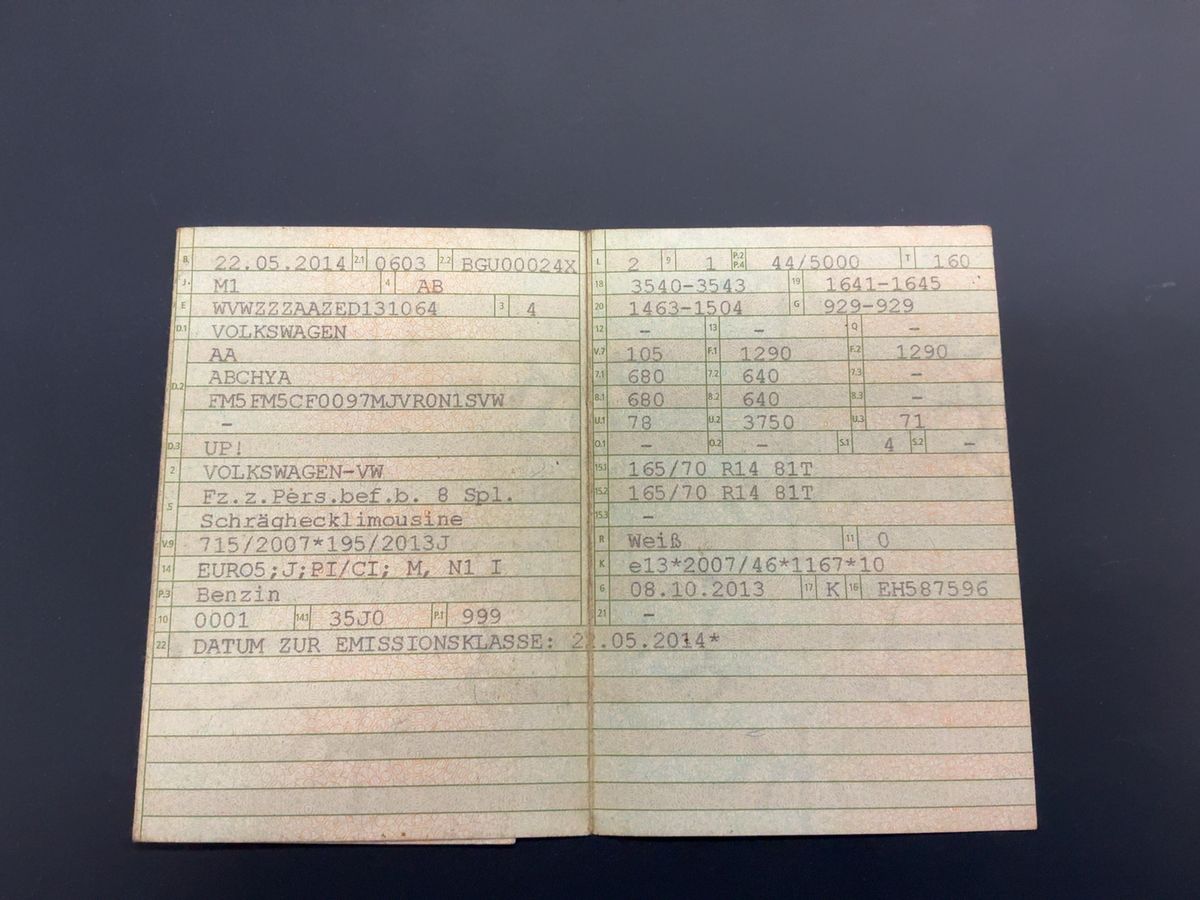 B 22.05.2014 2.1 0603 2.2 BGU00024X
J M1 4 AB
E WVWZZZAAZED131064 3 4
D.1 VOLKSWAGEN
AA
D.2 ABCHYA
FM5FM5CF0097MJVR0N1SVW
–
D.3 UP!
2 VOLKSWAGEN-VW
5 Fz.z.Pers.bef.b. 8 Spl.
Schräghecklimousine
V.9 715/2007*195/2013J
14 EURO5;J;PI/CI; M, N1 I
P.3 Benzin
10 0001 14.1 35J0 P.1 999
22 DATUM ZUR EMISSIONSKLASSE: 22.05.2014*
L 2 9 1 P.2 P.4 44/5000 T 160
18 3540-3543 19 1641-1645
20 1463-1504 G 929-929
12 – 13 – Q –
V.7 105 F.1 1290 F.2 1290
7.1 680 7.2 640 7.3 –
8.1 680 8.2 640 8.3 –
U.1 78 U.2 3750 U.3 71
O.1 – O.2 – S.1 4 S.2 –
15.1 165/70 R14 81T
15.2 165/70 R14 81T
15.3 –
R Weiß 11 0
K e13*2007/46*1167*10
6 08.10.2013 17 K 16 EH587596
21 –